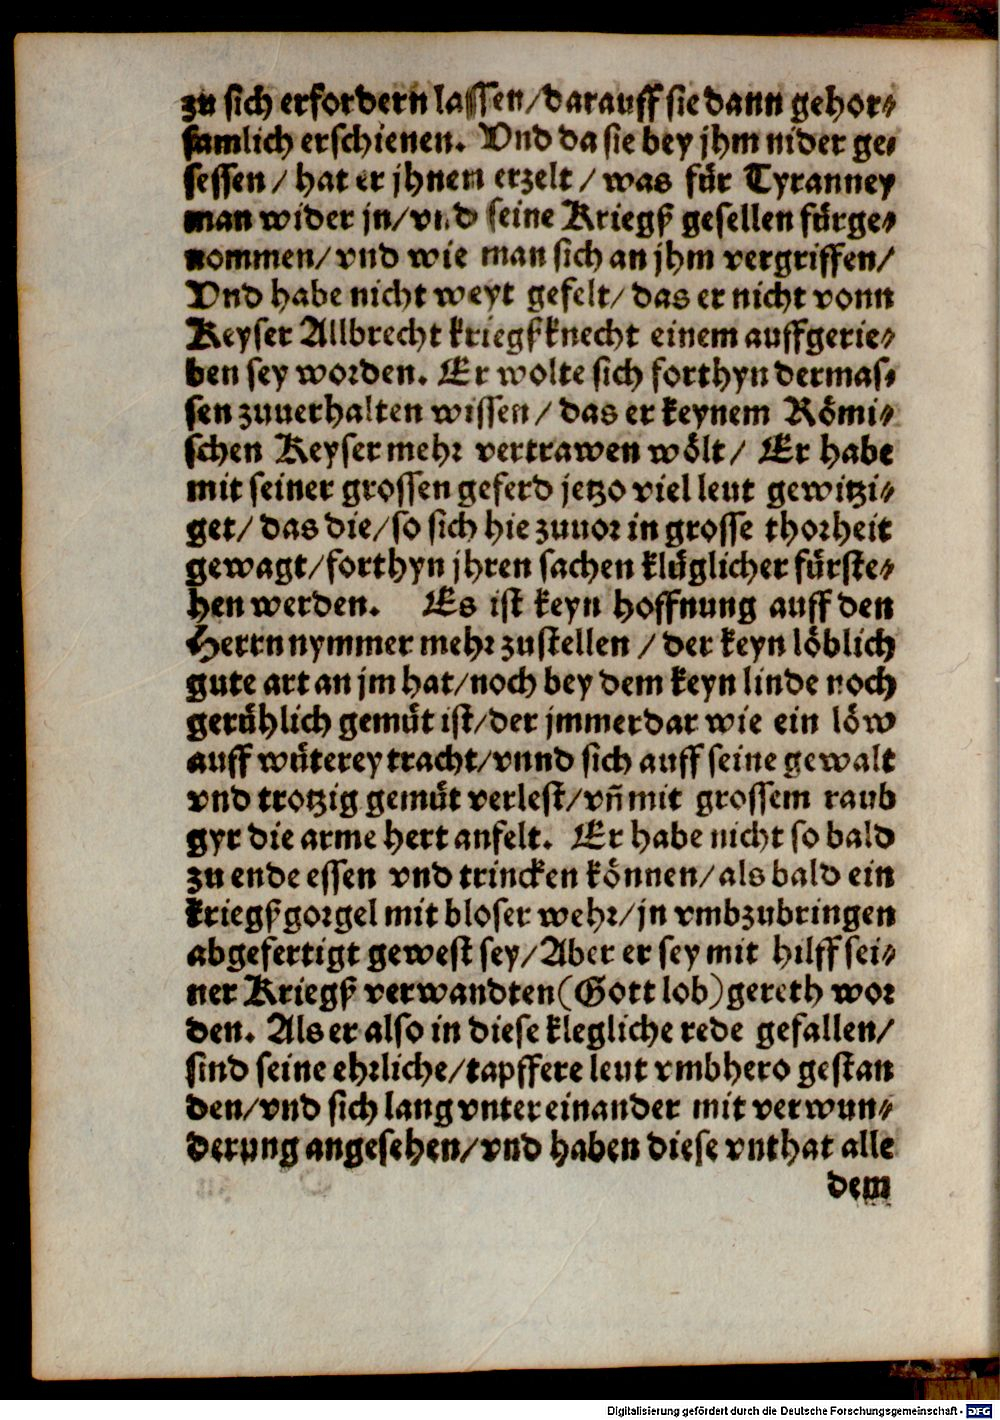 zu sich erfordern lassen/darauff sie dann gehor⸗
samlich erschienen. Vnd da sie bey jhm nider ge⸗
sessen / hat er jhnen erzelt / was für Tyranney
man wider jn/vnd seine Kriegß gesellen fürge⸗
nommen/vnd wie man sich an jhm vergriffen/
Vnd habe nicht weyt gefelt/das er nicht vonn
Keyser Allbrecht kriegßknecht einem auffgerie⸗
ben sey worden. Er wolte sich forthyn dermas⸗
sen zuuerhalten wissen / das er keynem Römi⸗
schen Keyser mehr vertrawen wölt/ Er habe
mit seiner grossen geferd jetzo viel leut gewitzi⸗
get/ das die/so sich hie zuuor in grosse thorheit
gewagt/forthyn jhren sachen klüglicher fürste⸗
hen werden. Es ist keyn hoffnung auff den
Herrn nymmer mehr zustellen / der keyn löblich
gute art an jm hat/noch bey dem keyn linde noch
gerühlich gemüt ist/der jmmerdar wie ein löw
auff wüterey tracht/vnnd sich auff seine gewalt
vnd trotzig gemüt verlest/vn̄ mit grossem raub
gyr die arme hert anfelt. Er habe nicht so bald
zu ende essen vnd trincken können/als bald ein
kriegßgorgel mit bloser wehr/jn vmbzubringen
abgefertigt gewest sey/Aber er sey mit hilff sei⸗
ner Kriegß verwandten(Gott lob)gereth wor
den. Als er also in diese klegliche rede gefallen/
sind seine ehrliche/tapffere leut vmbhero gestan
den/vnd sich lang vnter einander mit verwun⸗
derung angesehen/vnd haben diese vnthat alle
dem
Digitalisierung gefördert durch die Deutsche Forschungsgemeinschaft - DFG